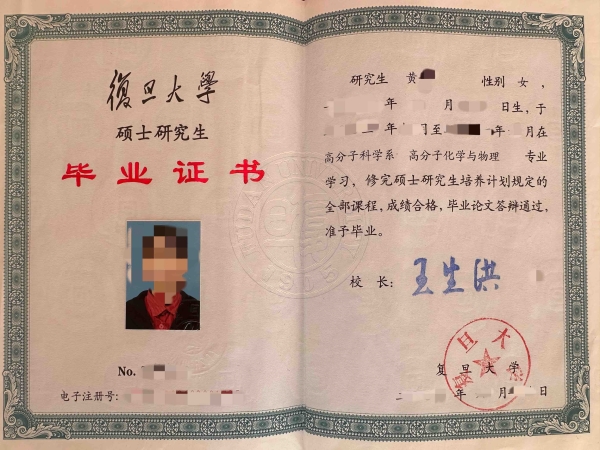 復旦大學
硕士研究生
毕业证书
No.
电子注册号:
研究生 黄 性别 女,
年 月 日生,于
年 月至 年 月在
高分子科学系 高分子化学与物理 专业
学习,修完硕士研究生培养计划规定的
全部课程,成绩合格,毕业论文答辩通过,
准予毕业。
校 长: 王生洪
复旦大学
复旦大学
年 月 日